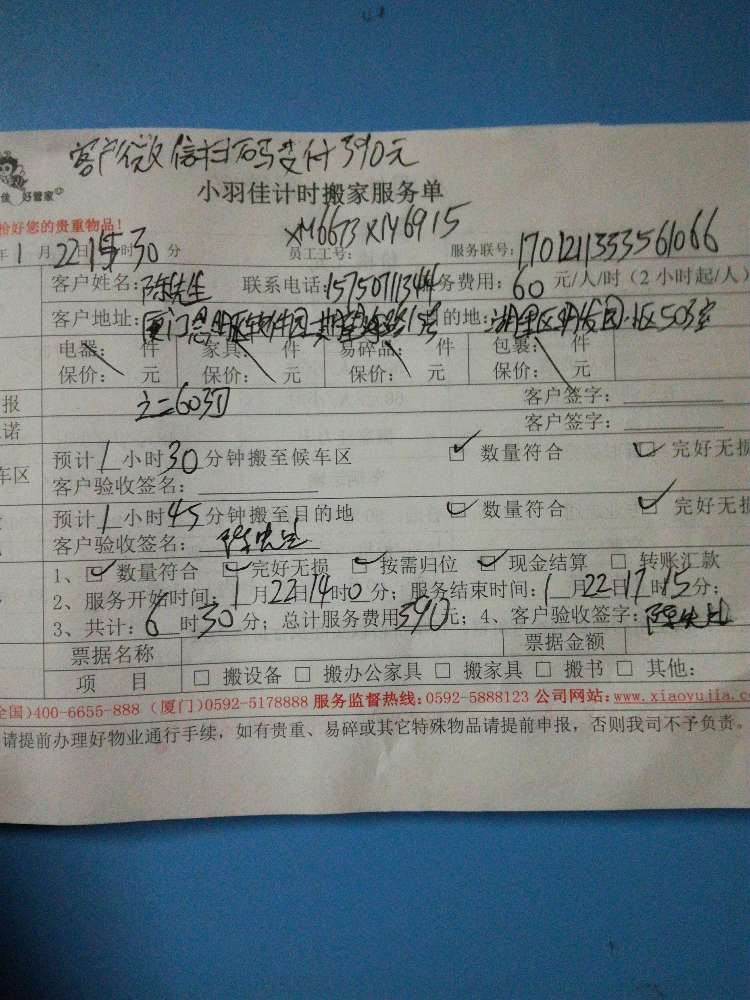 客户微信扫码支付390元
佳 好管家
小羽佳计时搬家服务单
检好您的贵重物品！
年1月22日 时30分 员工工号：XM6673 XM6915 服务联号：1701211333561066
客户姓名：陈先生 联系电话：157507113 务费用：60元/人/时（2小时起/人）
客户地址：厦门 软件园 1号 的地：湖里区 园 区503室
电器： 件 家具： 件 易碎品： 件 包裹： 件
保价： 元 保价： 元 保价： 元 保价： 元
报 客户签字：
诺 客户签字：
预计1小时30分钟搬至候车区 数量符合 完好无损
车区
客户验收签名：
预计1小时45分钟搬至目的地 数量符合 完好无损
客户验收签名：陈先生
1、数量符合 完好无损 按需归位 现金结算 转账汇款
2、服务开始时间：1月22日14时0分；服务结束时间：1月22日17时15分；
3、共计：6时30分；总计服务费用390元；4、客户验收签字：陈先生
票据名称 票据金额
项 目 搬设备 搬办公家具 搬家具 搬书 其他：
全国)400-6655-888（厦门)0592-5178888 服务监督热线：0592-5888123 公司网站：www.xiaoyujia.c
请提前办理好物业通行手续，如有贵重、易碎或其它特殊物品请提前申报，否则我司不予负责。